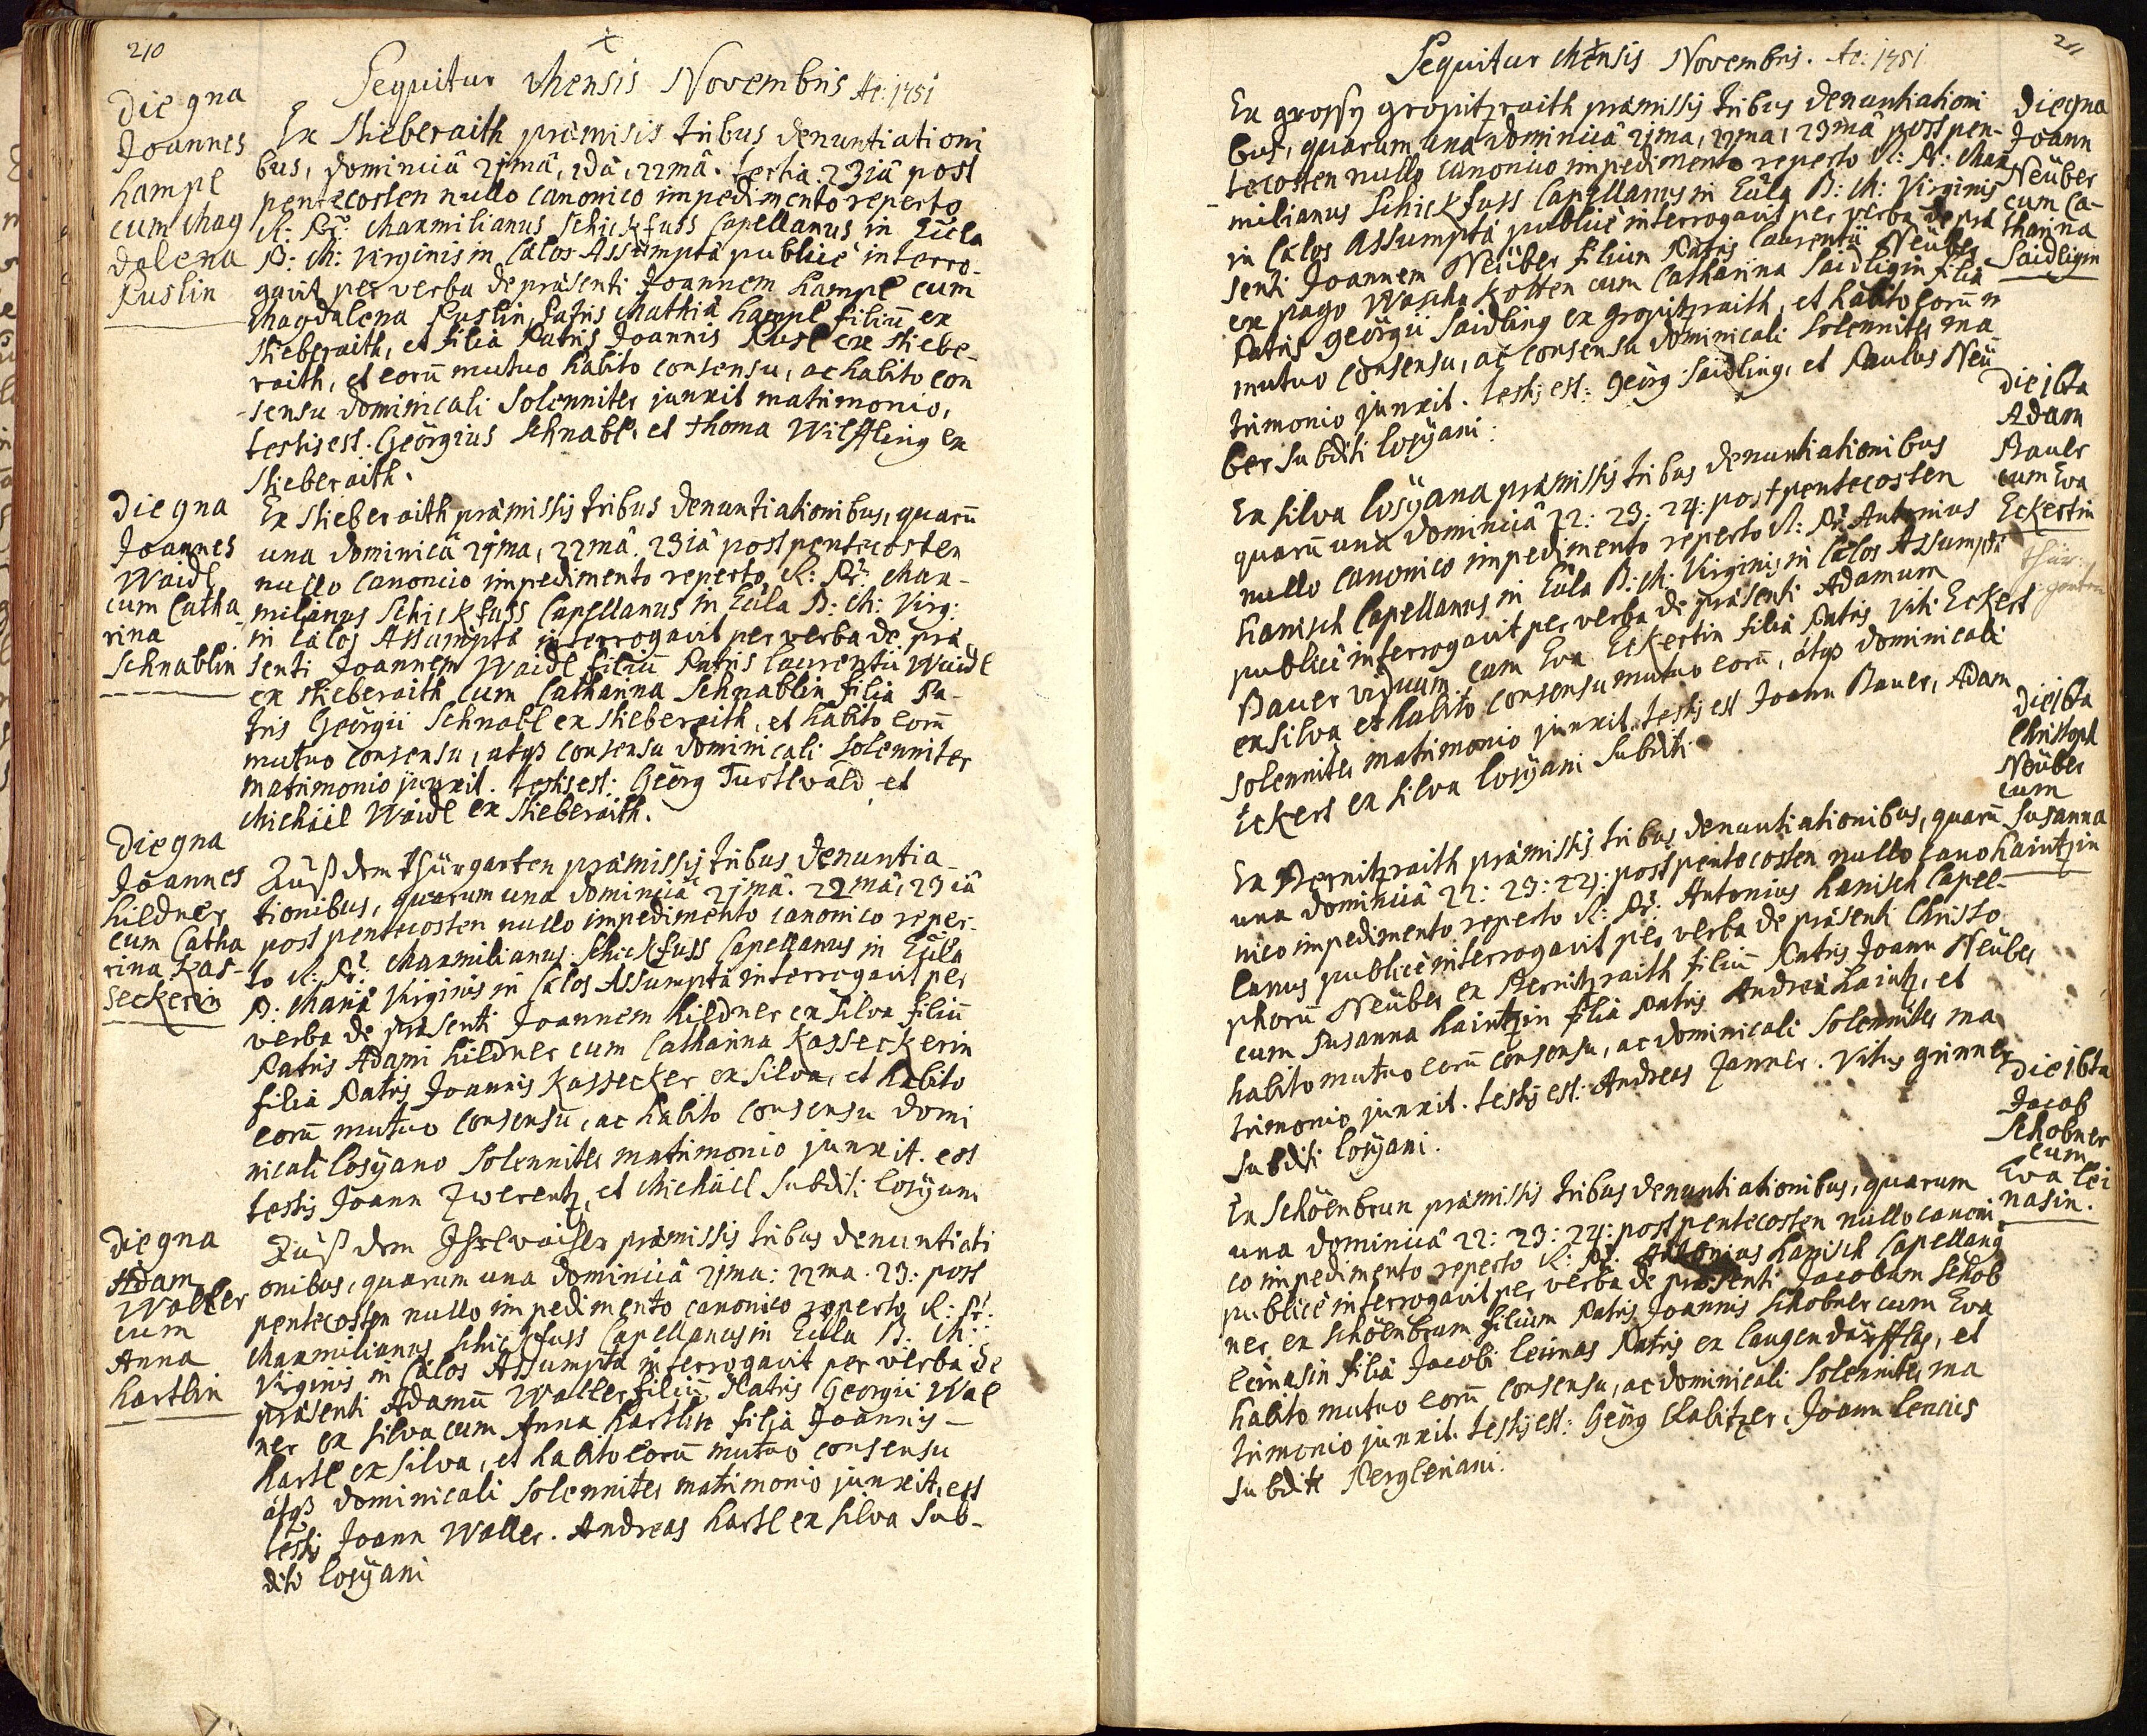 210
Sequitur Mensis Novembris Ao: 1751
Die 9na
Joannes
Hampl
cum Mag
dalena
Puslin
Ex Stieberaith præmisis tribus denuntiationi
bus, dominicâ 21mâ, 2dâ, 22mâ. tertia 23iâ post
pentecosten nullo canonico impedimento reperto
A: R: Pr: Maxmilianus Schickfuss Capellanus in Eüla
B: M: Virginis in Cælos Assumptæ publicè interro-
gavit per verba de præsenti Joannem Hampl cum
Magdalena Puslin, Patris Mathiæ Hampl filiū ex
Stieberaith, et filiâ Patris Joannis Pusl ex Stiebe-
raith, et eorū mutuo habito consensu, ac habito con
-sensu dominicali solenniter junxit matrimonio,
testis est: Geörgius Schnabl, et Thoma Wilffling ex
Stieberaith.
Die 9na
Joannes
Waidl
cum Catha
rina
Schnablin
Ex Stieberaith præmissis tribus denuntiationibus, quarū
una dominicâ 21ma, 22mâ. 23iâ post pentecosten
nullo canonico impedimento reperto R: Pr: Max-
milianus Schickfuss Capellanus in Eüla B: M: Virg:
in Cælos Assumptæ interrogavit per verba de præ
senti Joannem Waidl filiū Patris Laurentii Waidl
ex Stieberaith cum Catharina Schnablin filia Pa-
tris Geörgii Schnabl ex Stieberaith, et habito eorū
mutuo consensu, atqs consensu dominicali solenniter
matrimonio junxit. testis est: Geörg Turtlwald et
Michäel Waidl ex Stieberaith.
Die 9na
Joannes
Hildner
cum Catha
rina Kas-
seckerin
Auß dem Thürgarten præmissis tribus denuntia-
tionibus, quarum una dominicâ 21mâ. 22mâ, 23iâ
post pentecosten nullo impedimento canonico reper-
to R: Pr: Maxmilianus Schickfuss Capellanus in Eüla
B: Mariæ Virginis in Cælos Assumptæ interrogavit per
verba de præsenti Joannem Hildner ex Silva filiū
Patris Adami Hildner cum Catharina Kasseckerin
filiâ Patris Joannis Kassecker ex Silva, et habito
eorū mutuo consensu, ac habito consensu domi
nicali Losÿano solenniter matrimonio junxit. est
testis Joann Zwerentz, et Michäel subditi Losÿani
Die 9na
Adam
Waller
cum
Anna
Hartlin
Auß dem præmissis tribus denuntiati
onibus, quarum una dominicâ 21ma: 22ma. 23: post
pentecosten nullo impedimento canonico reperto R: Pr:
Maxmilianus Schickfuss Capellanus in Eülla B: M:
Virginis in Cælos Assumptæ interrogavit per verba de
præsenti Adamū Waller filiū Patris Georgii Wal
ner ex Silva cum Anna Hartlin filiâ Joannis -
Hartl ex Silva, et habito eorū mutuo consensu
atqs dominicali solenniter matrimonio junxit, est
testis Joann Waller. Andreas Hartl ex Silva sub-
diti Losÿani
211
Sequitur Mensis Novembris. Ao: 1751
Die 9na
Joann
Neüber
cum Ca-
tharina
Saidligin
Ex grossÿ Gropitzraith præmissis tribus denuntiationi
bus, quarum una dominicâ 21ma, 22ma, 23mâ post pen-
tecosten nullo canonico impedimento reperto R: Pr: Max
milianus Schickfuss Capellanus in Eüla B: M: Virginis
in Cælos Assumptæ publicè interrogavit per verba de præ
senti Joannem Neüber filium Patris Laurentii Neüber
ex pago Wascha Kotten cum Catharina Saidligin filiâ
Patris Geörgii Saidling ex Gropitzraith, et habito eorū
mutuo consensu, ac consensu dominicali solenniter ma
trimonio junxit. testis est: Geörg Saidling, et Paulus Neü
ber subditi Losÿani:
Die 16ta
Adam
Bauer
cum Eva
Eckertin
Thür
garten
Ex Silva Losÿana præmissis tribus denuntiationibus
quarū una dominicâ 22: 23: 24: post pentecosten
nullo canonico impedimento reperto R: Pr: Antonius
Hanisch Capellanus in Eüla B: M: Virginis in Cælos Assumptæ
publicè interrogavit per verba de præsenti Adamum
Bauer viduum cum Eva Eckertin filiâ Patris Viti Eckert
ex Silva et habito consensu mutuo eorū, atqs dominicali
solenniter matrimonio junxit. testis est Joann Bauer, Adam
Eckert ex Silva Losÿani subditi
Die 16ta
Christoph
Neüber
cum
Susanna
Haintzin
Ex Pernitzraith præmissis tribus denuntiationibus, quarū
una dominicâ 22: 23: 24: post pentecosten nullo cano
nico impedimento reperto R: Pr: Antonius Hanisch Capel-
lanus publicè interrogavit per verba de præsenti Christo
phorū Neüber ex Pernitzraith filiū Patris Joann Neüber
cum Susanna Haintzin filiâ Patris Andreæ Haintz, et
habito mutuo eorū consensu, ac dominicali solenniter ma
trimonio junxit. testis est: Andreas Janner. Vitus Grinner
subditi Losÿani.
Die 16ta
Jacob
Schobner
cum
Eva Lei
nasin.
Ex Schöenbrun præmissis tribus denuntiationibus, quarum
una dominicâ 22: 23: 24: post pentecosten nullo canoni
co impedimento reperto R: Pr: Antonius Hanisch Capellang
publicè interrogavit per verba de præsenti Jacobum Schob
ner ex Schöenbrum filium Patris Joannis Schobner cum Eva
Leinasin filiâ Jacobi Leinas Patris ex Langendärfflas, et
habito mutuo eorū consensu, ac dominicali solenniter ma
trimonio junxit. testis est: Geörg Rabitzer, Joann Lenius
subditi Pergleriani.